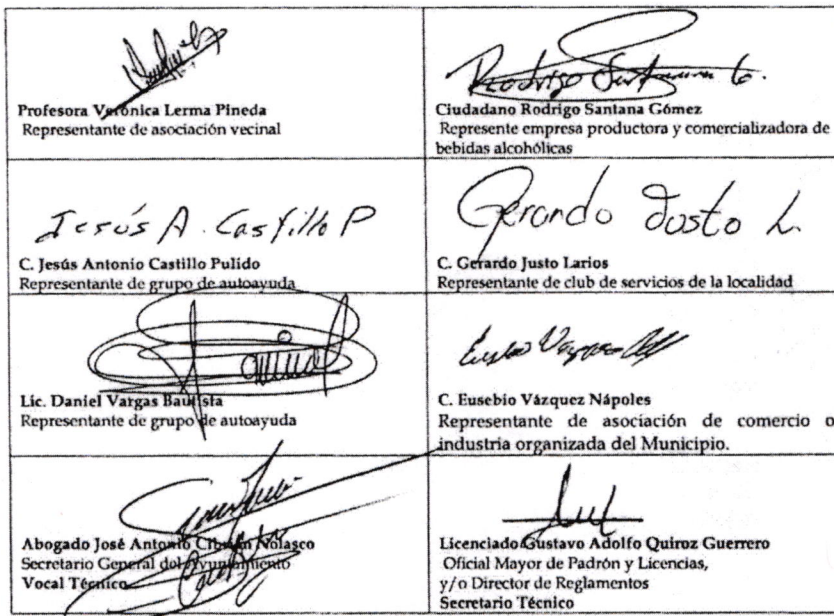 Profesora Verónica Lerma Pineda
Representante de asociación vecinal
Rodrigo Santana G.
Ciudadano Rodrigo Santana Gómez
Represente empresa productora y comercializadora de
bebidas alcohólicas
Jesús A. Castillo P
C. Jesús Antonio Castillo Pulido
Representante de grupo de autoayuda
Gerardo Justo L.
C. Gerardo Justo Larios
Representante de club de servicios de la localidad
Lic. Daniel Vargas Bautista
Representante de grupo de autoayuda
C. Eusebio Vázquez Nápoles
Representante de asociación de comercio o
industria organizada del Municipio.
Abogado José Antonio Cibrián Nolasco
Secretario General del Ayuntamiento
Vocal Técnico
Licenciado Gustavo Adolfo Quiroz Guerrero
Oficial Mayor de Padrón y Licencias,
y/o Director de Reglamentos
Secretario Técnico